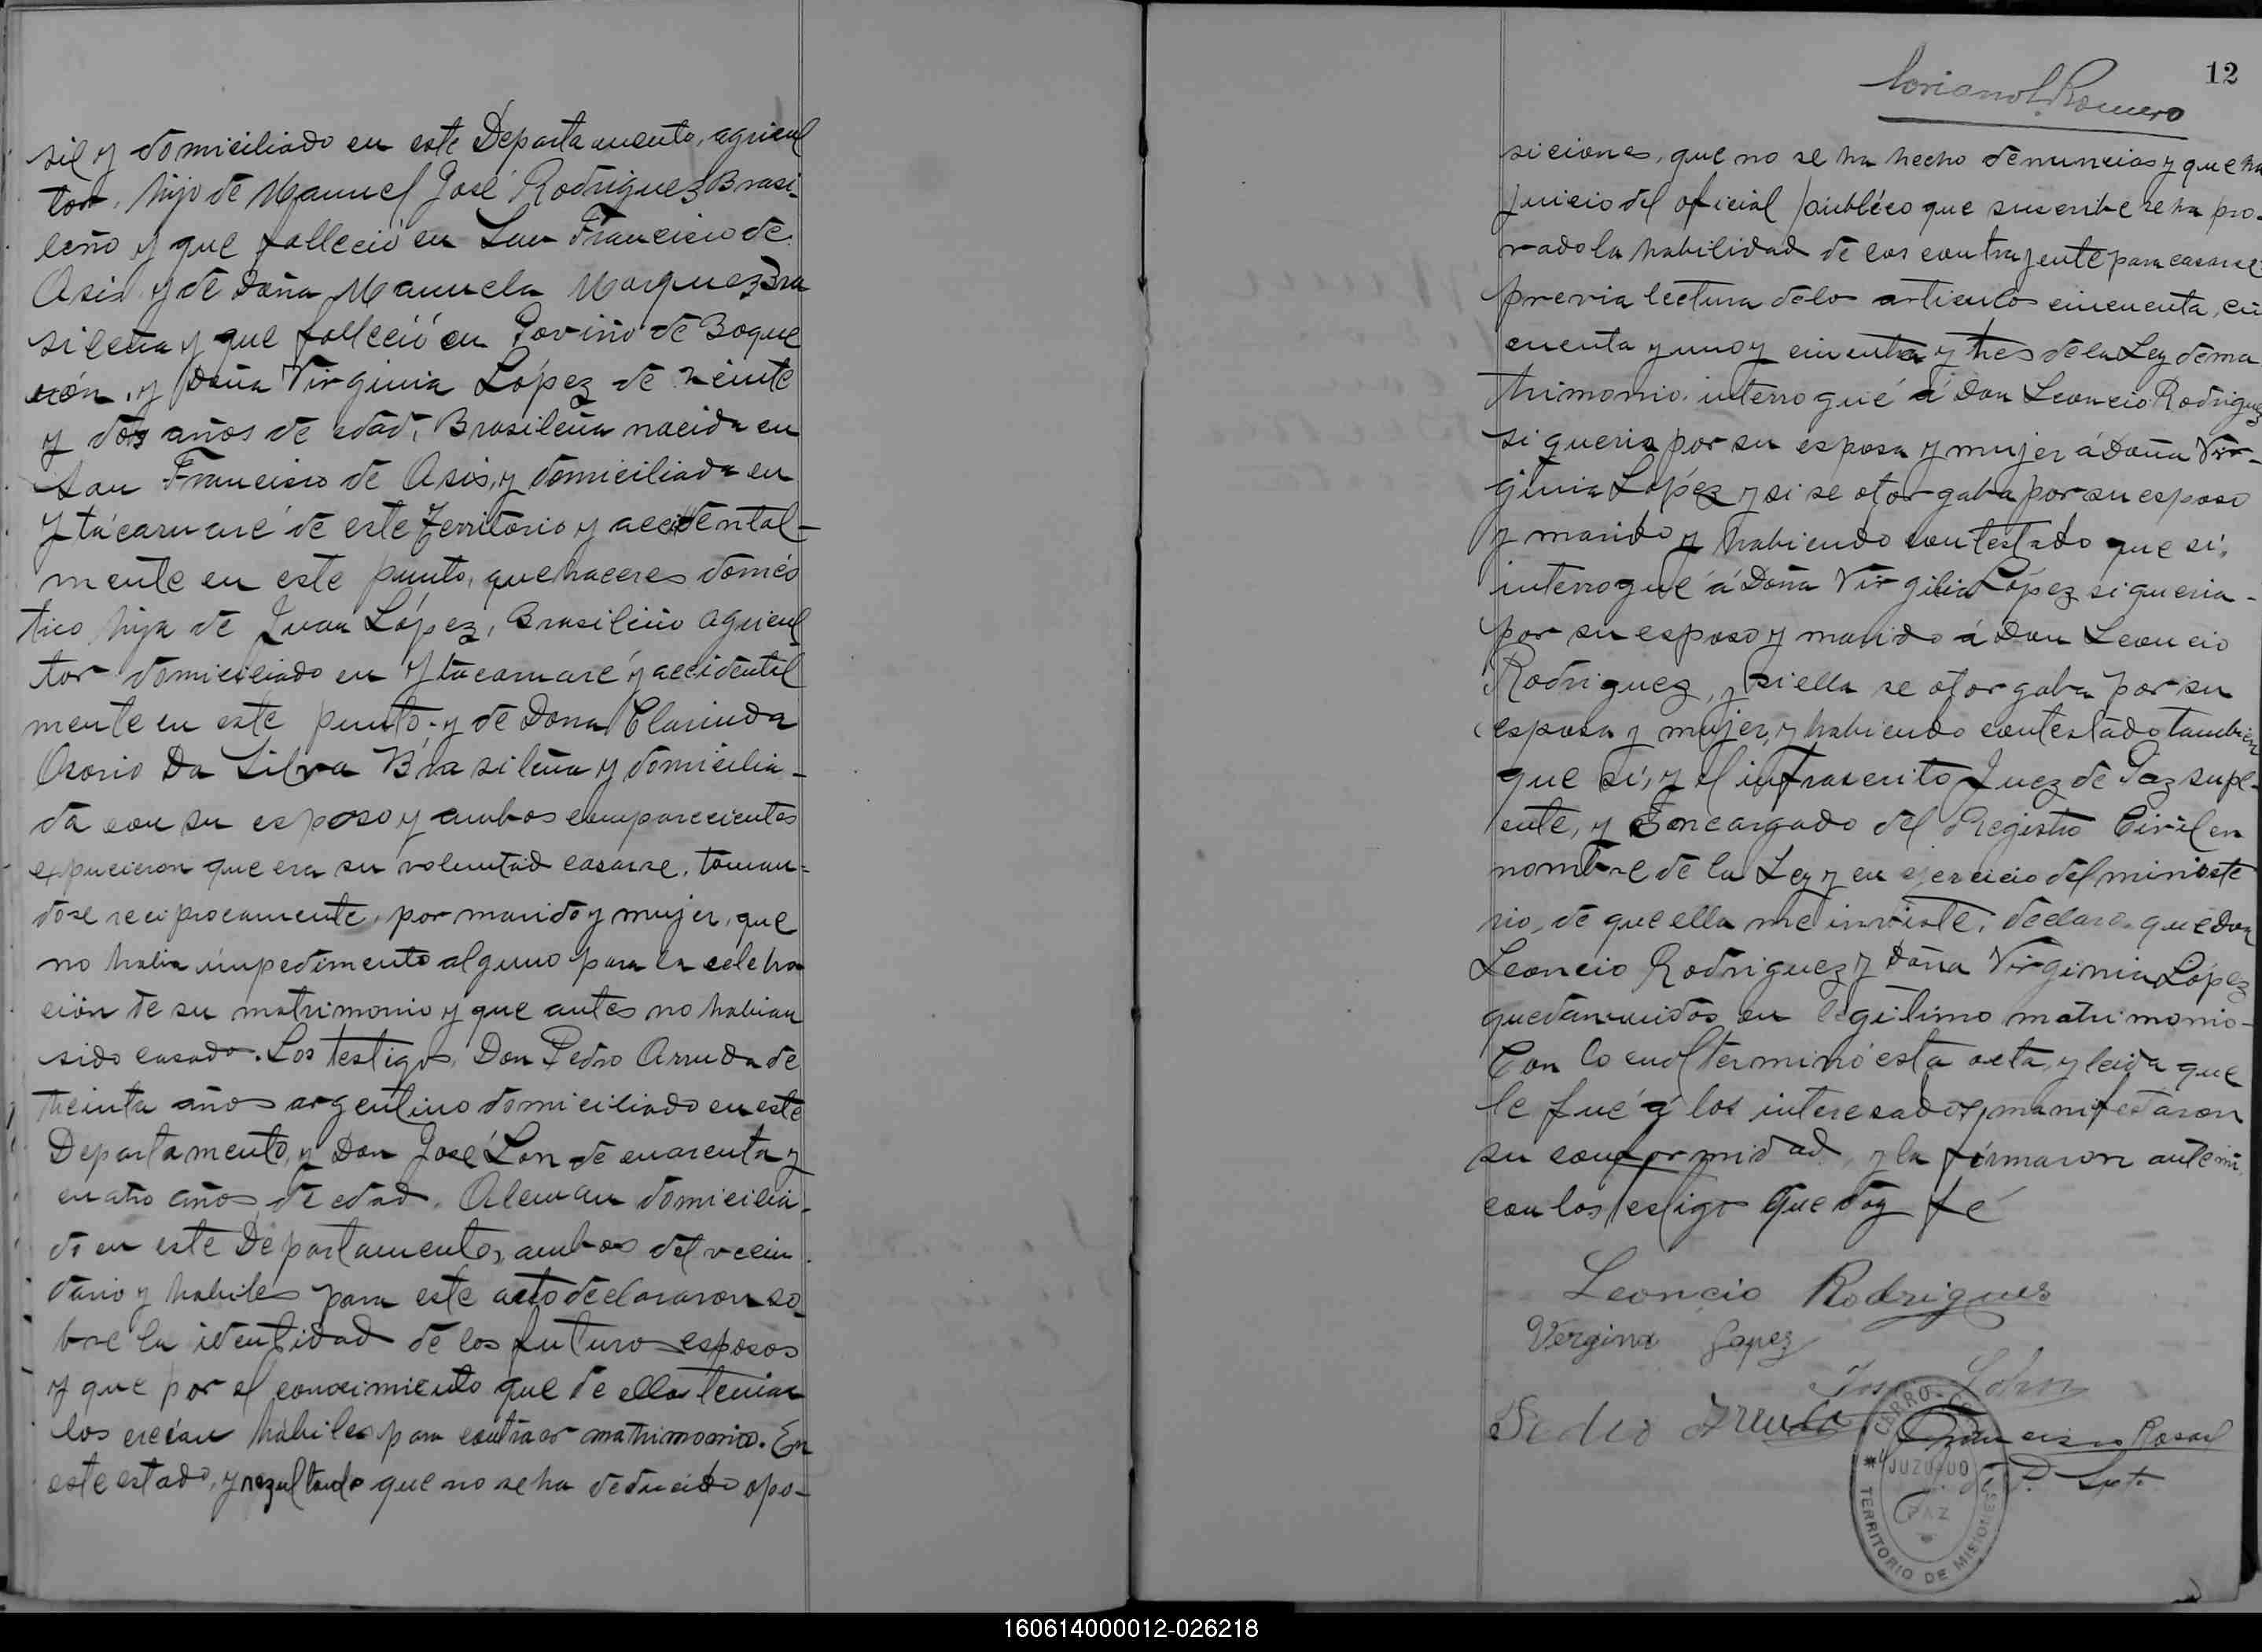 sil y domiciliado en este Departamento, agricul
tor, hijo de Manuel José Rodriguez Brasi-
leño y que falleció en San Francisco de
Asis y de Doña Manuela Marquez Bra
sileña y que falleció en Poviño de Boque
ron, y Doña Virginia López de veinte
y dos años de edad, Brasileña nacida en
San Francisco de Asis, y domiciliada en
Ytacaruaré de este Territorio y accidental-
mente en este punto, quehaceres domés
tico hija de Juan López, Brasileño agricul
tor domiciliado en Ytacaruaré y accidental
mente en este punto, y de Dona Clarinda
Osorio Da Silva Brasileña y domicilia-
da con su esposo y ambos comparecientes
expucieron que era su voluntad casarse, toman-
dose reciprocamente, por marido y mujer, que
no habia impedimento alguno para la celebra
ción de su matrimonio y que antes no habian
sido casado. Los testigos, Don Pedro Arruda de
treinta años argentino domiciliado en este
Departamento, y Don José Lon de cuarenta y
cuatro años de edad, Aleman domicilia-
do en este Departamento, ambos del vecin
dario y habiles para este acto declararon so
bre la identidad de los futuros esposos
y que por el conocimiento que de ellos tenian
los creían hábiles para contraer matrimonio. En
este estado, y rezultando que no se ha deducido opo-
12
Romero
siciones, que no se ha hecho denuncias y que ha
juicio del oficial público que suscribe se ha pro-
vado la habilidad de los contrajente para casarse
previa lectura delos articulos cincuenta, cin
cuenta y uno y cincuenta y tres de la Ley de ma
trimonio, interrogué á Don Leoncio Rodriguez
si queria por su esposa y mujer á Doña Vir-
ginia López y si se otorgaba por su esposo
y marido y habiendo contestado que sí,
interrogué á Doña Virginia López si queria-
por su esposo y marido á Don Leoncio
Rodriguez, y si ella se otorgaba por su
esposa y mujer, y habiendo contestado tambien
que sí, y el infrascrito Juez de Paz suple-
ente, y Encargado del Registro Civil en
nombre de la Ley y en ejercicio del ministe
rio, de que ella me inviste, declaro que Don
Leoncio Rodriguez y Doña Virginia López
quedan unidos en legitimo matrimonio-
Con lo cual terminó esta acta, y leida que
le fué á los interesados, manifestaron
su conformidad, y la firmaron ante mi
con los testigos que doy fé
Leoncio Rodrigues
Vergina Lopez
Pedro Arruda
Francisco
CERRO
JUZGADO
PAZ
TERRITORIO DE MISIONES
160614000012-026218